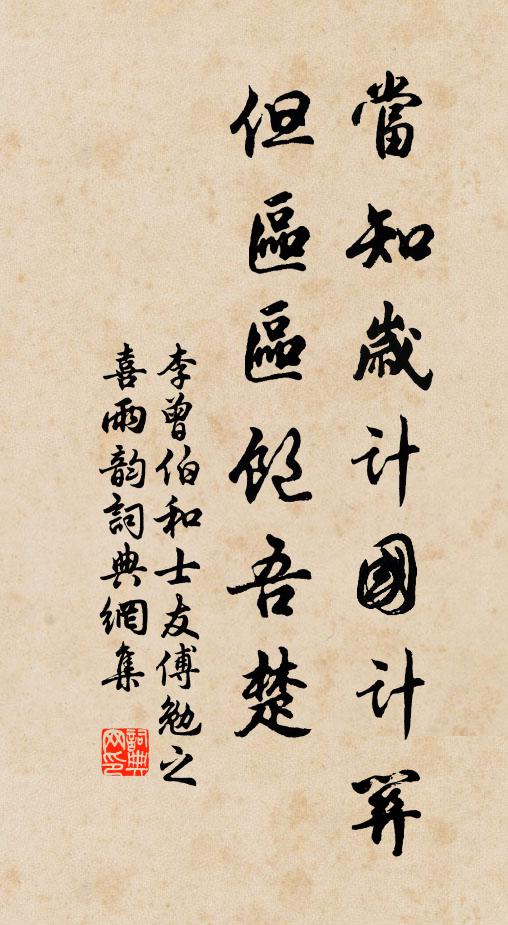 當知歲計國計
但區區飽吾楚
李曾伯和士友傅勉之
喜雨韵詞典網集
詞典网印